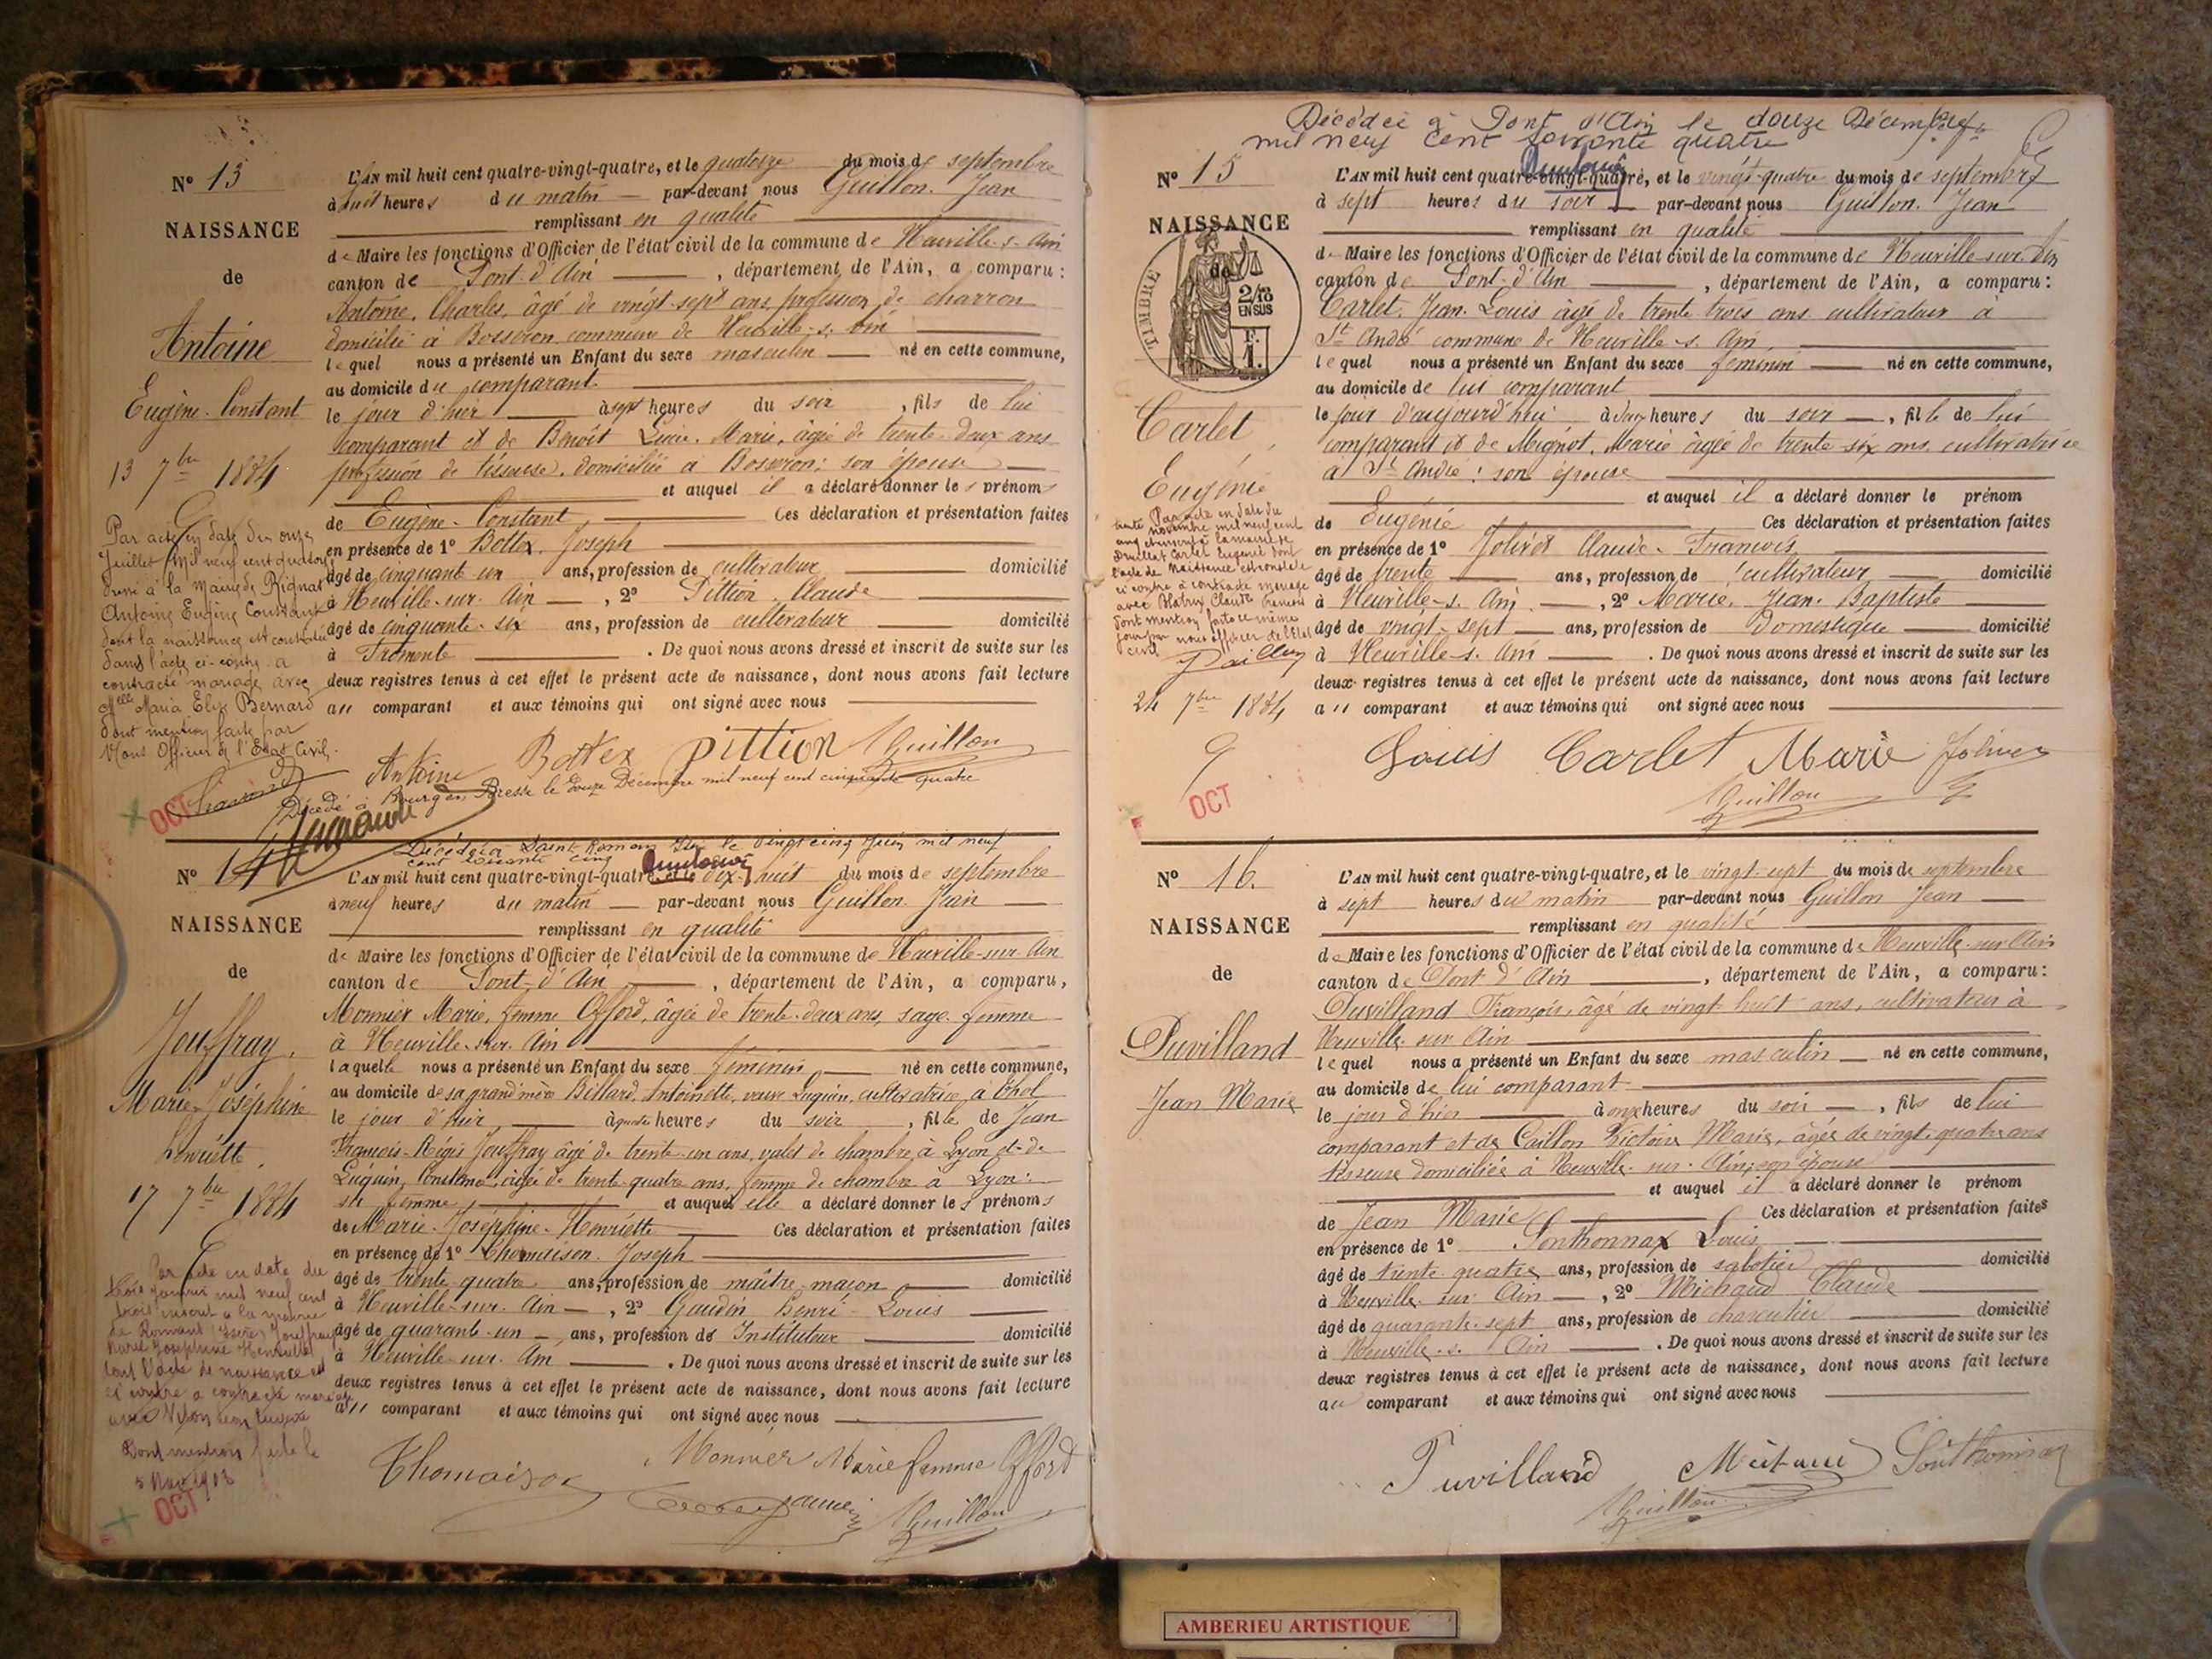 N° 13
NAISSANCE
de
Antoine
Eugène-Constant
13 7bre 1884
Par acte en date du onze
Juillet Mil neuf cent quatorze
dressé à la Mairie de Rignat
Antoine Eugène Constant
dont la naissance est constatée
dans l'acte ci-contre a
contracté mariage avec
Melle Maria Elise Bernard
dont mention faite par
Nous Officier de l'Etat Civil.
OCT
L'AN mil huit cent quatre-vingt-quatre, et le quatorze du mois de septembre
à huit heures du matin par-devant nous Guillon. Jean
remplissant en qualité
de Maire les fonctions d'Officier de l'état civil de la commune de Neuville-s-Ain
canton de Pont-d'Ain, département de l'Ain, a comparu:
Antoine, Charles, âgé de vingt-sept ans, profession de charron
domicilié à Bosseron commune de Neuville-s-Ain
lequel nous a présenté un Enfant du sexe masculin né en cette commune,
au domicile du comparant
le jour d'hier à sept heures du soir, fils de lui
comparant et de Benoît Lucie-Marie, âgée de trente-deux ans
profession de tisseuse, domiciliée à Bosseron; son épouse
et auquel il a déclaré donner les prénoms
de Eugène-Constant. Ces déclaration et présentation faites
en présence de 1° Bottex, Joseph
âgé de cinquant-un ans, profession de cultivateur domicilié
à Neuville-sur-Ain, 2° Pittion, Claude
âgé de cinquante-six ans, profession de cultivateur domicilié
à Fromente. De quoi nous avons dressé et inscrit de suite sur les
deux registres tenus à cet effet le présent acte de naissance, dont nous avons fait lecture
au comparant et aux témoins qui ont signé avec nous
Antoine Bottex pittion Guillon
Décédé à Bourg en Bresse le douze Décembre mil neuf cent cinquante quatre
N° 14
NAISSANCE
de
Jouffray,
Marie-Joséphine
Henriette.
17 7bre 1884
Par acte en date du
trois janvier mil neuf cent
trois inscrit à la mairie
de Romans (Isère) Jouffray
Marie Joséphine Henriette
dont l'acte de naissance est
ci contre a contracté mariage
avec
Dont mention faite le
1903
OCT
Décédée à Saint Romans Isère le vingt cinq Juin mil neuf
cent soixante cinq
L'AN mil huit cent quatre-vingt-quatre, et le dix-huit du mois de septembre
à neuf heures du matin par-devant nous Guillon Jean
remplissant en qualité
de Maire les fonctions d'Officier de l'état civil de la commune de Neuville-sur-Ain
canton de Pont-d'Ain, département de l'Ain, a comparu,
Monnier Marie, femme Offord, âgée de trente-deux ans, sage-femme
à Neuville-sur-Ain
laquelle nous a présenté un Enfant du sexe féminin né en cette commune,
au domicile de sa grand'mère Billard, Antoinette, veuve Luquin, cultivatrice, à Thol
le jour d'hier à quatre heures du soir, fille de Jean
François-Régis Jouffray âgé de trente-un ans, valet de chambre, à Lyon et de
Luquin, Constance, âgée de trente-quatre ans, femme de chambre à Lyon:
sa femme et auquel elle a déclaré donner les prénoms
de Marie-Joséphine-Henriette Ces déclaration et présentation faites
en présence de 1° Thomaison. Joseph
âgé de trente-quatre ans, profession de maître-maçon domicilié
à Neuville-sur-Ain, 2° Gaudin Henri-Louis
âgé de quarante-un ans, profession de Instituteur domicilié
à Neuville-sur-Ain. De quoi nous avons dressé et inscrit de suite sur les
deux registres tenus à cet effet le présent acte de naissance, dont nous avons fait lecture
au comparant et aux témoins qui ont signé avec nous
Thomaison Monnier Marie femme Offord
Guillon
Décédée à Pont d'Ain le douze Décembre
mil neuf cent soixante quatre
N° 15
NAISSANCE
de
TIMBRE
2/10
EN SUS
F.
1.
Carlet
Eugénie
24 7bre 1884
OCT
L'AN mil huit cent quatre-vingt-quatre, et le vingt-quatre du mois de septembre
à sept heures du soir par-devant nous Guillon. Jean
remplissant en qualité
de Maire les fonctions d'Officier de l'état civil de la commune de Neuville-sur-Ain
canton de Pont-d'Ain, département de l'Ain, a comparu:
Carlet, Jean-Louis âgé de trente-trois ans cultivateur à
St André commune de Neuville-s-Ain
lequel nous a présenté un Enfant du sexe féminin né en cette commune,
au domicile de lui comparant
le jour d'aujourd'hui à deux heures du soir, fille de lui
comparant et de Mignot, Marie âgée de trente-six ans, cultivatrice
à St André: son épouse
et auquel il a déclaré donner le prénom
de Eugénie Ces déclaration et présentation faites
en présence de 1° Jolivet Claude-François
âgé de trente ans, profession de cultivateur domicilié
à Neuville-s-Ain, 2° Marie, Jean-Baptiste
âgé de vingt-sept ans, profession de domestique domicilié
à Neuville-s-Ain. De quoi nous avons dressé et inscrit de suite sur les
deux registres tenus à cet effet le présent acte de naissance, dont nous avons fait lecture
au comparant et aux témoins qui ont signé avec nous
Louis Carlet Marie Jolivet
Guillon
N° 16.
NAISSANCE
de
Puvilland
Jean Marie
L'AN mil huit cent quatre-vingt-quatre, et le vingt-sept du mois de septembre
à sept heures du matin par-devant nous Guillon Jean
remplissant en qualité
de Maire les fonctions d'Officier de l'état civil de la commune de Neuville-sur-Ain
canton de Pont d'Ain, département de l'Ain, a comparu:
Puvilland François, âgé de vingt-huit ans, cultivateur à
Neuville-sur-Ain
lequel nous a présenté un Enfant du sexe masculin né en cette commune,
au domicile de lui comparant
le jour d'hier à onze heures du soir, fils de lui
comparant et de Caillon Victoire Marie, âgée de vingt-quatre ans
tisseuse domiciliée à Neuville-sur-Ain; son épouse
et auquel il a déclaré donner le prénom
de Jean Marie Ces déclaration et présentation faites
en présence de 1° Ponthonnax Louis
âgé de trente-quatre ans, profession de sabotier domicilié
à Neuville-sur-Ain, 2° Michaud Claude
âgé de quarante-sept ans, profession de charcutier domicilié
à Neuville-s-Ain. De quoi nous avons dressé et inscrit de suite sur les
deux registres tenus à cet effet le présent acte de naissance, dont nous avons fait lecture
au comparant et aux témoins qui ont signé avec nous
Puvilland Michaud Ponthonnax
Guillon
AMBERIEU ARTISTIQUE